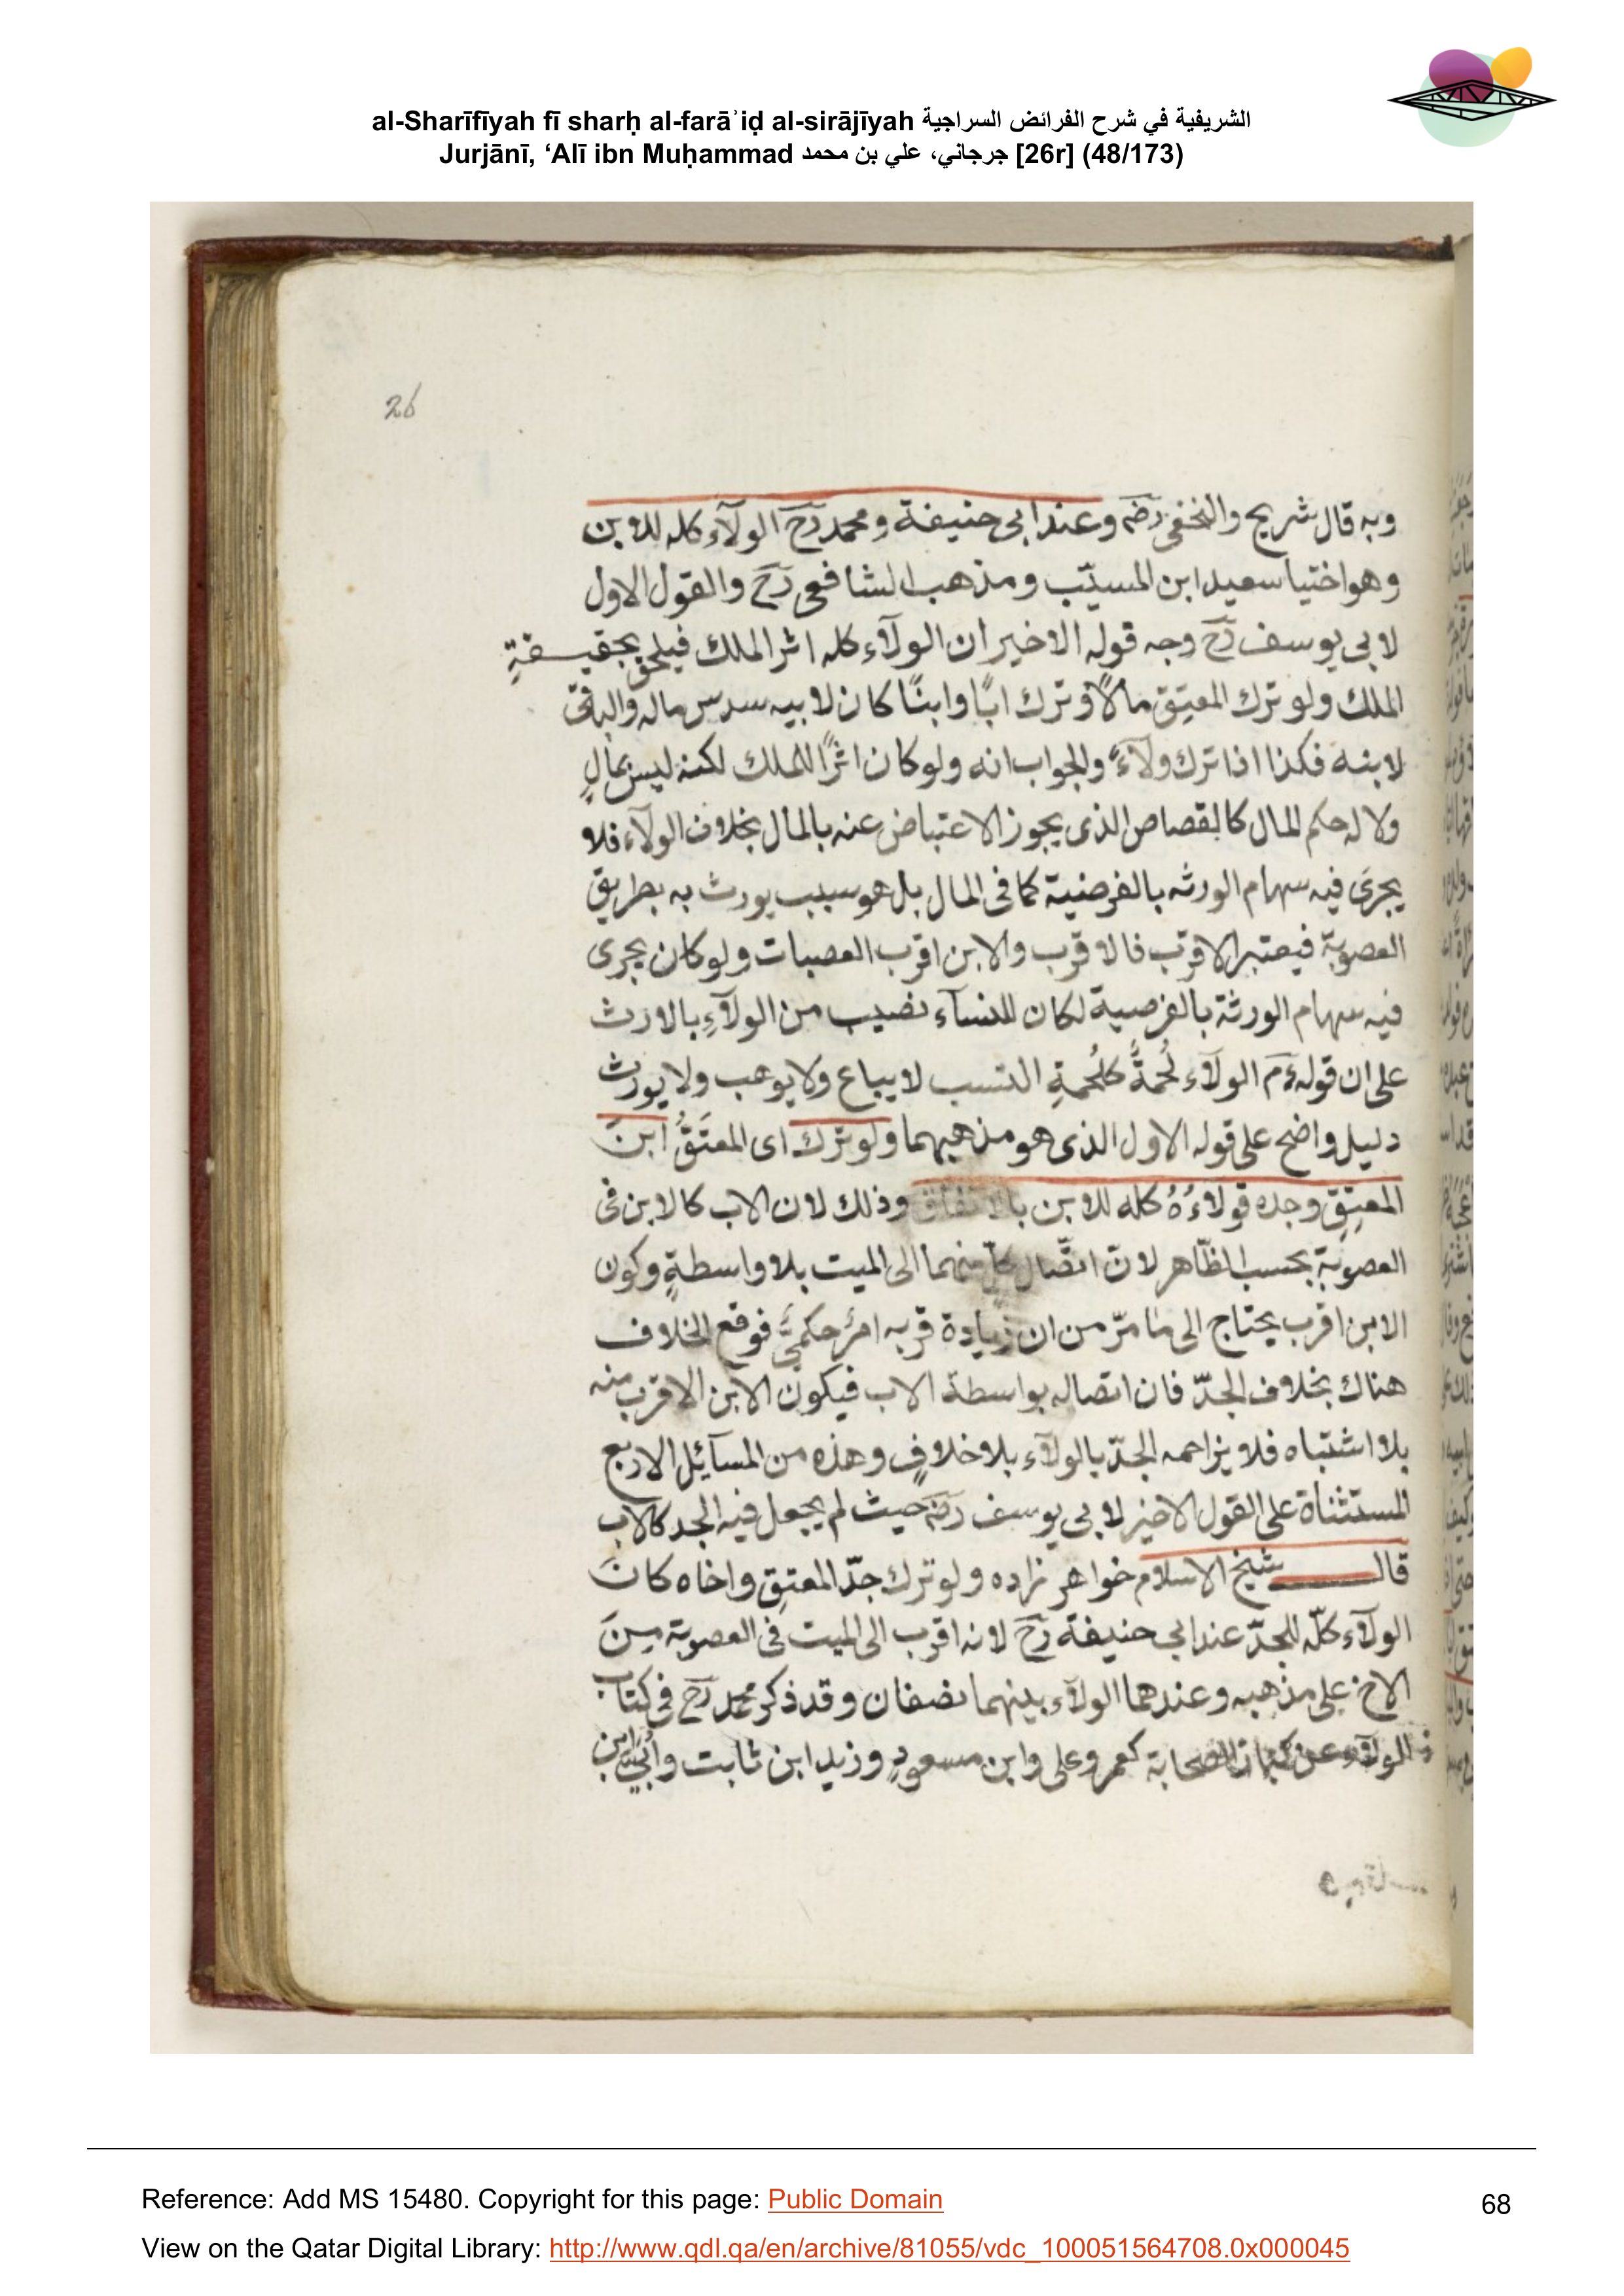 al-Sharīfīyah fī sharḥ al-farāʾiḍ al-sirājīyah الشريفية في شرح الفرائض السراجية
Jurjānī, ‘Alī ibn Muḥammad جرجاني، علي بن محمد [26r] (48/173)
26
وبه قال شريح والنخعى رضهم وعند ابى حنيفة ومحمد رح الولآء كله للابن
وهو اختيا سعيد ابن المسيّب ومذهب الشافعى رح والقول الاول
لابى يوسف رح وجه قوله الاخير ان الولآء كله اثر الملك فيلحق بحقيقةِ
الملك ولو ترك المعتِق مالًا وترك ابًا وابنًا كان لابيه سدس ماله والباقى
لابنه فكذا اذا ترك ولاءً والجواب انه ولو كان اثرًا للملك لكنه ليس بمالٍ
ولا له حكم المال كالقصاص الذى يجوز الاعتياض عنه بالمال بخلاف الولآء فلا
يجرى فيه سهام الورثه بالفرضية كما فى المال بل هو سبب يورث به بطريق
العصوبة فيعتبر الاقرب فالاقرب والابن اقرب العصبات ولو كان يجرى
فيه سهام الورثة بالفرضية لكان للنسآء نصيب من الولآءِ بالارث
على ان قوله ءم الولآء لُحمةٌ كلُحمةِ النسب لا يباع ولا يوهب ولا يورث
دليل واضح على قوله الاول الذى هو مذهبهما ولو ترك اى المعتَقُ ابنَ
المعتِقِ وجده فولاءُهُ كله للابن بالاتفاق وذلك لان الاب كالابن فى
العصوبة بحسب الظّاهر لانّ اتصّال كلٍّ منهما الى الميت بلا واسطةٍ وكون
الابن اقرب يحتاج الى ما مرّ من ان زيادة قربه امرٌ حكمىٌّ فوقع الخلاف
هناك بخلاف الجدّ فان اتصاله بواسطة الاب فيكون الابن الاقرب منه
بلا اشتباه فلا يزاحمه الجدّ بالولآء بلا خلافٍ وهذه من المسآئل الاربع
المستثناة على القول الاخير لابى يوسف رضه حيث لم يجعل فيه الجد كالاب
قال شيخ الاسلام خواهر زاده ولو ترك جدّ المعتِق واخاه كانَ
الولآء كلّه للجدّ عند ابى حنيفة رح لانه اقرب الى الميت فى العصوبة مِنَ
الاخ على مذهبه وعندهما الولآء بينهما نصفان وقد ذكر محمد رح فى كتاب
الولآء عن كبار الصحابة كعمر وعلى وابن مسعودٍ وزيد ابن ثابت واُبىّ ابن
Reference: Add MS 15480. Copyright for this page: Public Domain
68
View on the Qatar Digital Library: http://www.qdl.qa/en/archive/81055/vdc_100051564708.0x000045